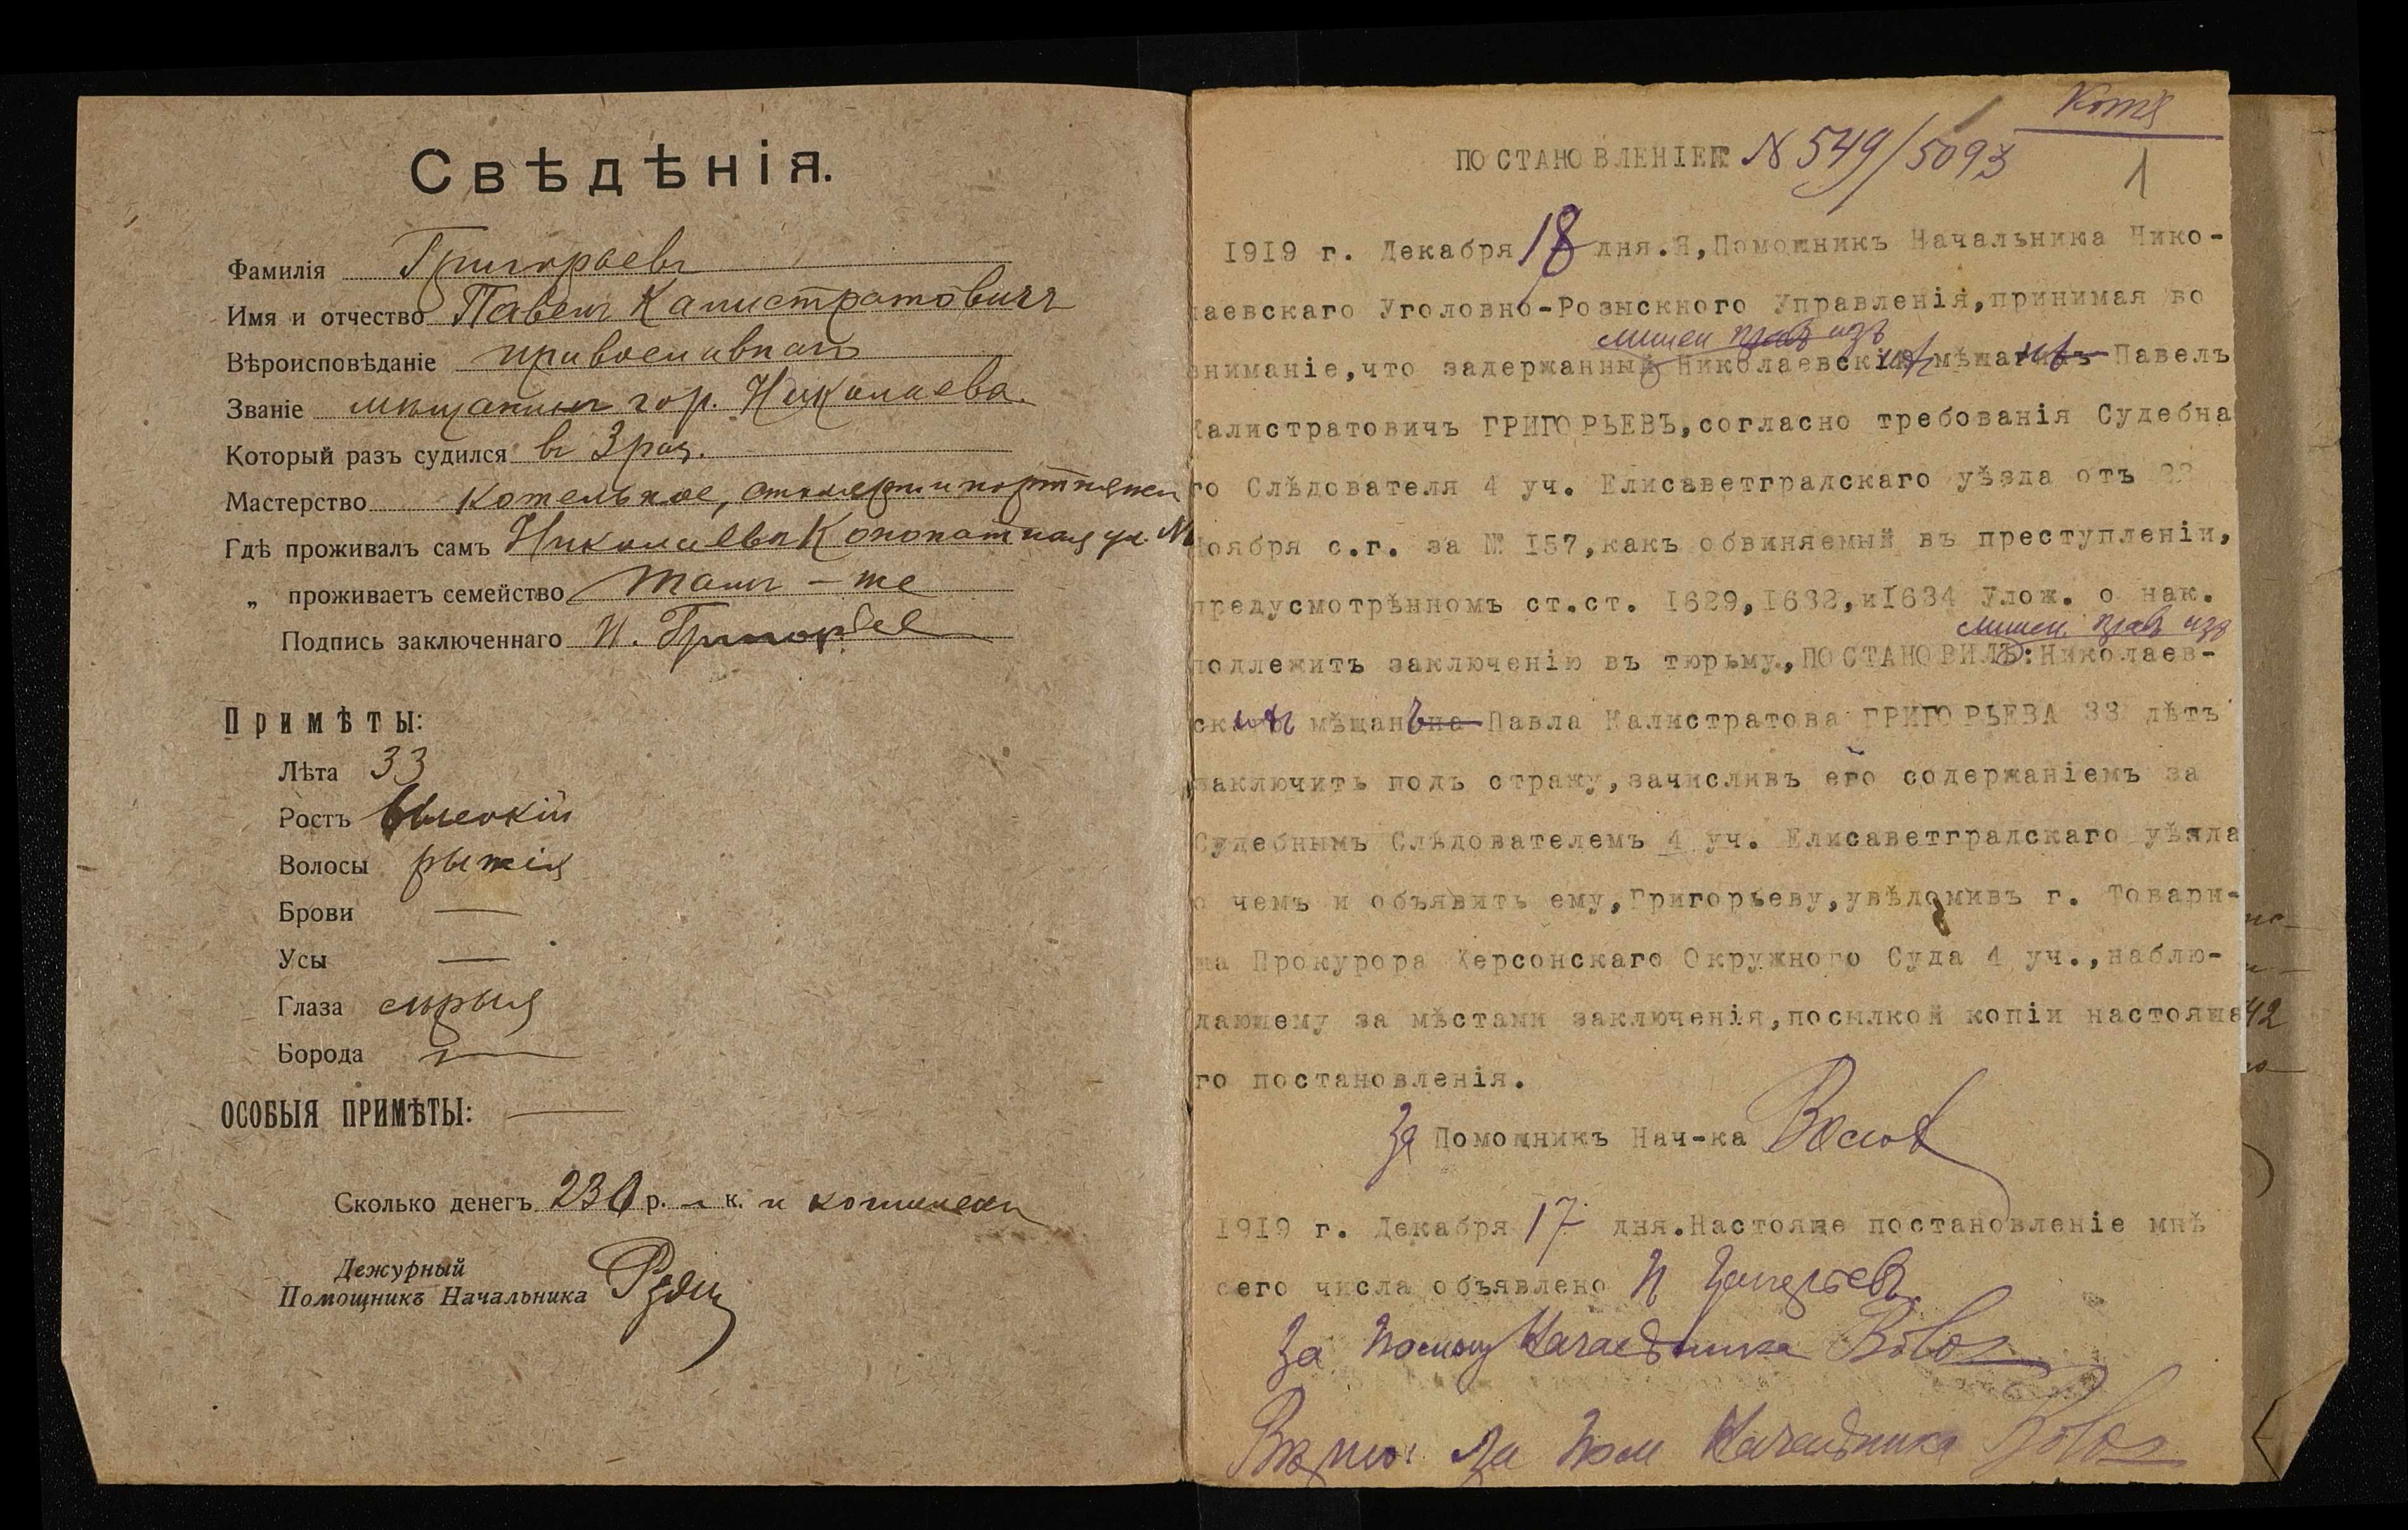 Свѣдѣнія.
Фамилія Григорьевъ
Имя и отчество Павелъ Калистратовичъ
Вѣроисповѣданіе православнаго
Званіе мѣщанинъ гор. Николаева.
Который разъ судился въ 3 раз.
Мастерство котельное, столярн и портняжн
Гдѣ проживалъ самъ Николаевъ Конопатная ул. №
„ проживаетъ семейство тамъ-же
Подпись заключеннаго П. Григорьев
Примѣты:
Лѣта 33
Ростъ высокій
Волосы рыжія
Брови —
Усы —
Глаза сѣрыя
Борода —
ОСОБЫЯ ПРИМѢТЫ: —
Сколько денегъ 230 р. — к. и кошелекъ
Дежурный
Помощникъ Начальника
Копія
1
ПОСТАНОВЛЕНІЕ № 549/5093
1919 г. Декабря 18 дня. Я, Помощникъ Начальника Нико-
лаевскаго Уголовно-Розыскного Управленія, принимая во
лишен прав изъ
вниманіе, что задержанный Николаевскихъ мѣщанъ Павелъ
Калистратовичъ ГРИГОРЬЕВЪ, согласно требованія Судебна
го Слѣдователя 4 уч. Елисаветградскаго уѣзда отъ 22
Ноября с.г. за № 157, какъ обвиняемый въ преступленіи,
предусмотрѣнномъ ст.ст. 1629, 1632, и 1634 Улож. о нак.
лишен прав изъ
подлежитъ заключенію въ тюрьму, ПОСТАНОВИЛЪ: Николаев-
скихъ мѣщанъ Павла Калистратова ГРИГОРЬЕВА 33 лѣтъ
заключить подъ стражу, зачисливъ его содержаніемъ за
Судебнымъ Слѣдователемъ 4 уч. Елисаветградскаго уѣзда
о чемъ и объявить ему, Григорьеву, увѣдомивъ г. Товари-
ща Прокурора Херсонскаго Окружного Суда 4 уч., наблю-
дающему за мѣстами заключенія, посылкой копіи настояща
го постановленія.
За Помощникъ Нач-ка
1919 г. Декабря 17 дня. Настояще постановленіе мнѣ
сего числа объявлено П Григорьевъ
За Помощ Начальника
Вѣрно: За Пом Начальника
42